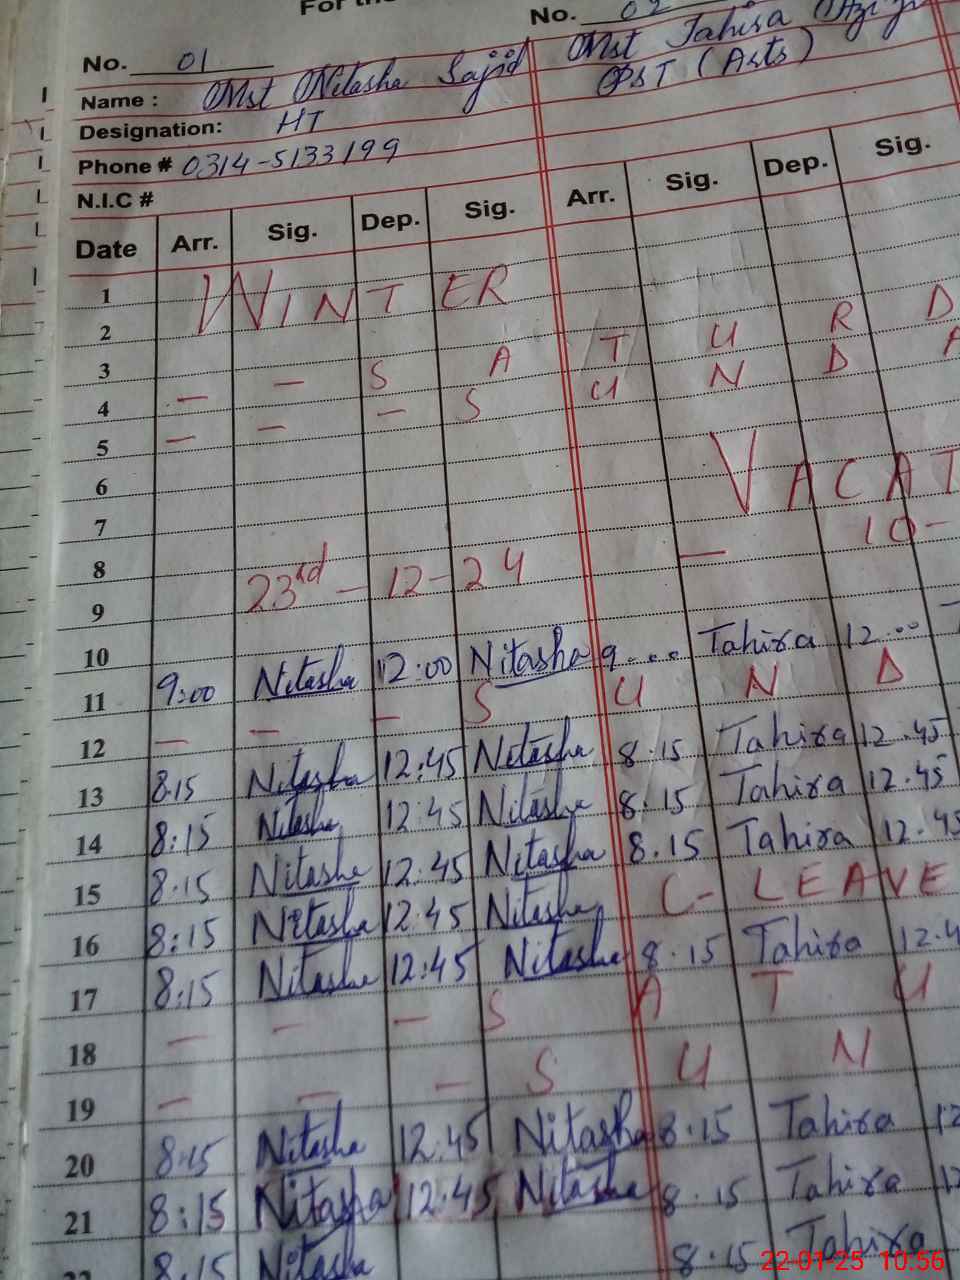 For the
No. 01 No. 02
Name : Mst Nitasha Sajid Mst Tahira
Designation: HT PST (Arts)
Phone # 0314-5133199
N.I.C #
Date Arr. Sig. Dep. Sig. Arr. Sig. Dep. Sig.
1 WINTER
2
3 - - S A T U R D
4 - - - S U N D A
5
6 VACAT
7
8 23rd - 12 - 24 - 10 -
9
10
11 9:00 Nitasha 12:00 Nitasha 9... Tahira 12.00
12 - - - S U N D
13 8.15 Nitasha 12:45 Nitasha 8.15 Tahira 12.45
14 8:15 Nitasha 12:45 Nitasha 8.15 Tahira 12.45
15 8.15 Nitasha 12:45 Nitasha 8.15 Tahira 12.45
16 8:15 Nitasha 12:45 Nitasha C-LEAVE
17 8:15 Nitasha 12:45 Nitasha 8.15 Tahira 12.4
18 - - - S A T U
19 - - - S U N
20 8.15 Nitasha 12.45 Nitasha 8.15 Tahira 12
21 8:15 Nitasha 12:45 Nitasha 8.15 Tahira 12
8.15 Nitasha 8.15 Tahira
22-01-25 10:56